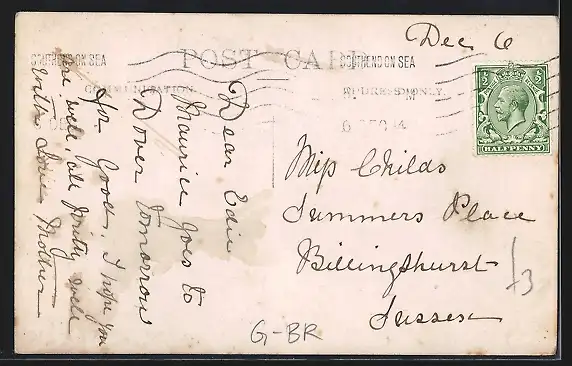 Dec 6
POST CARD
SOUTHEND ON SEA
SOUTHEND ON SEA
COMMUNICATION
ADDRESS ONLY.
HALFPENNY
Dear Edie
Maurice goes to
Dover tomorrow
for good. I hope you
are well, all pretty well
with love Mother
Miss Childs
Summers Place
Billingshurst
Sussex
£3
G-BR